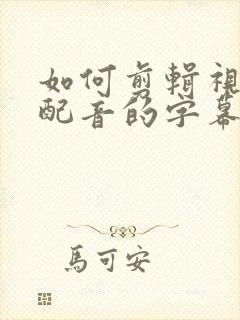 如何剪輯視
配音的字幕
馬可安